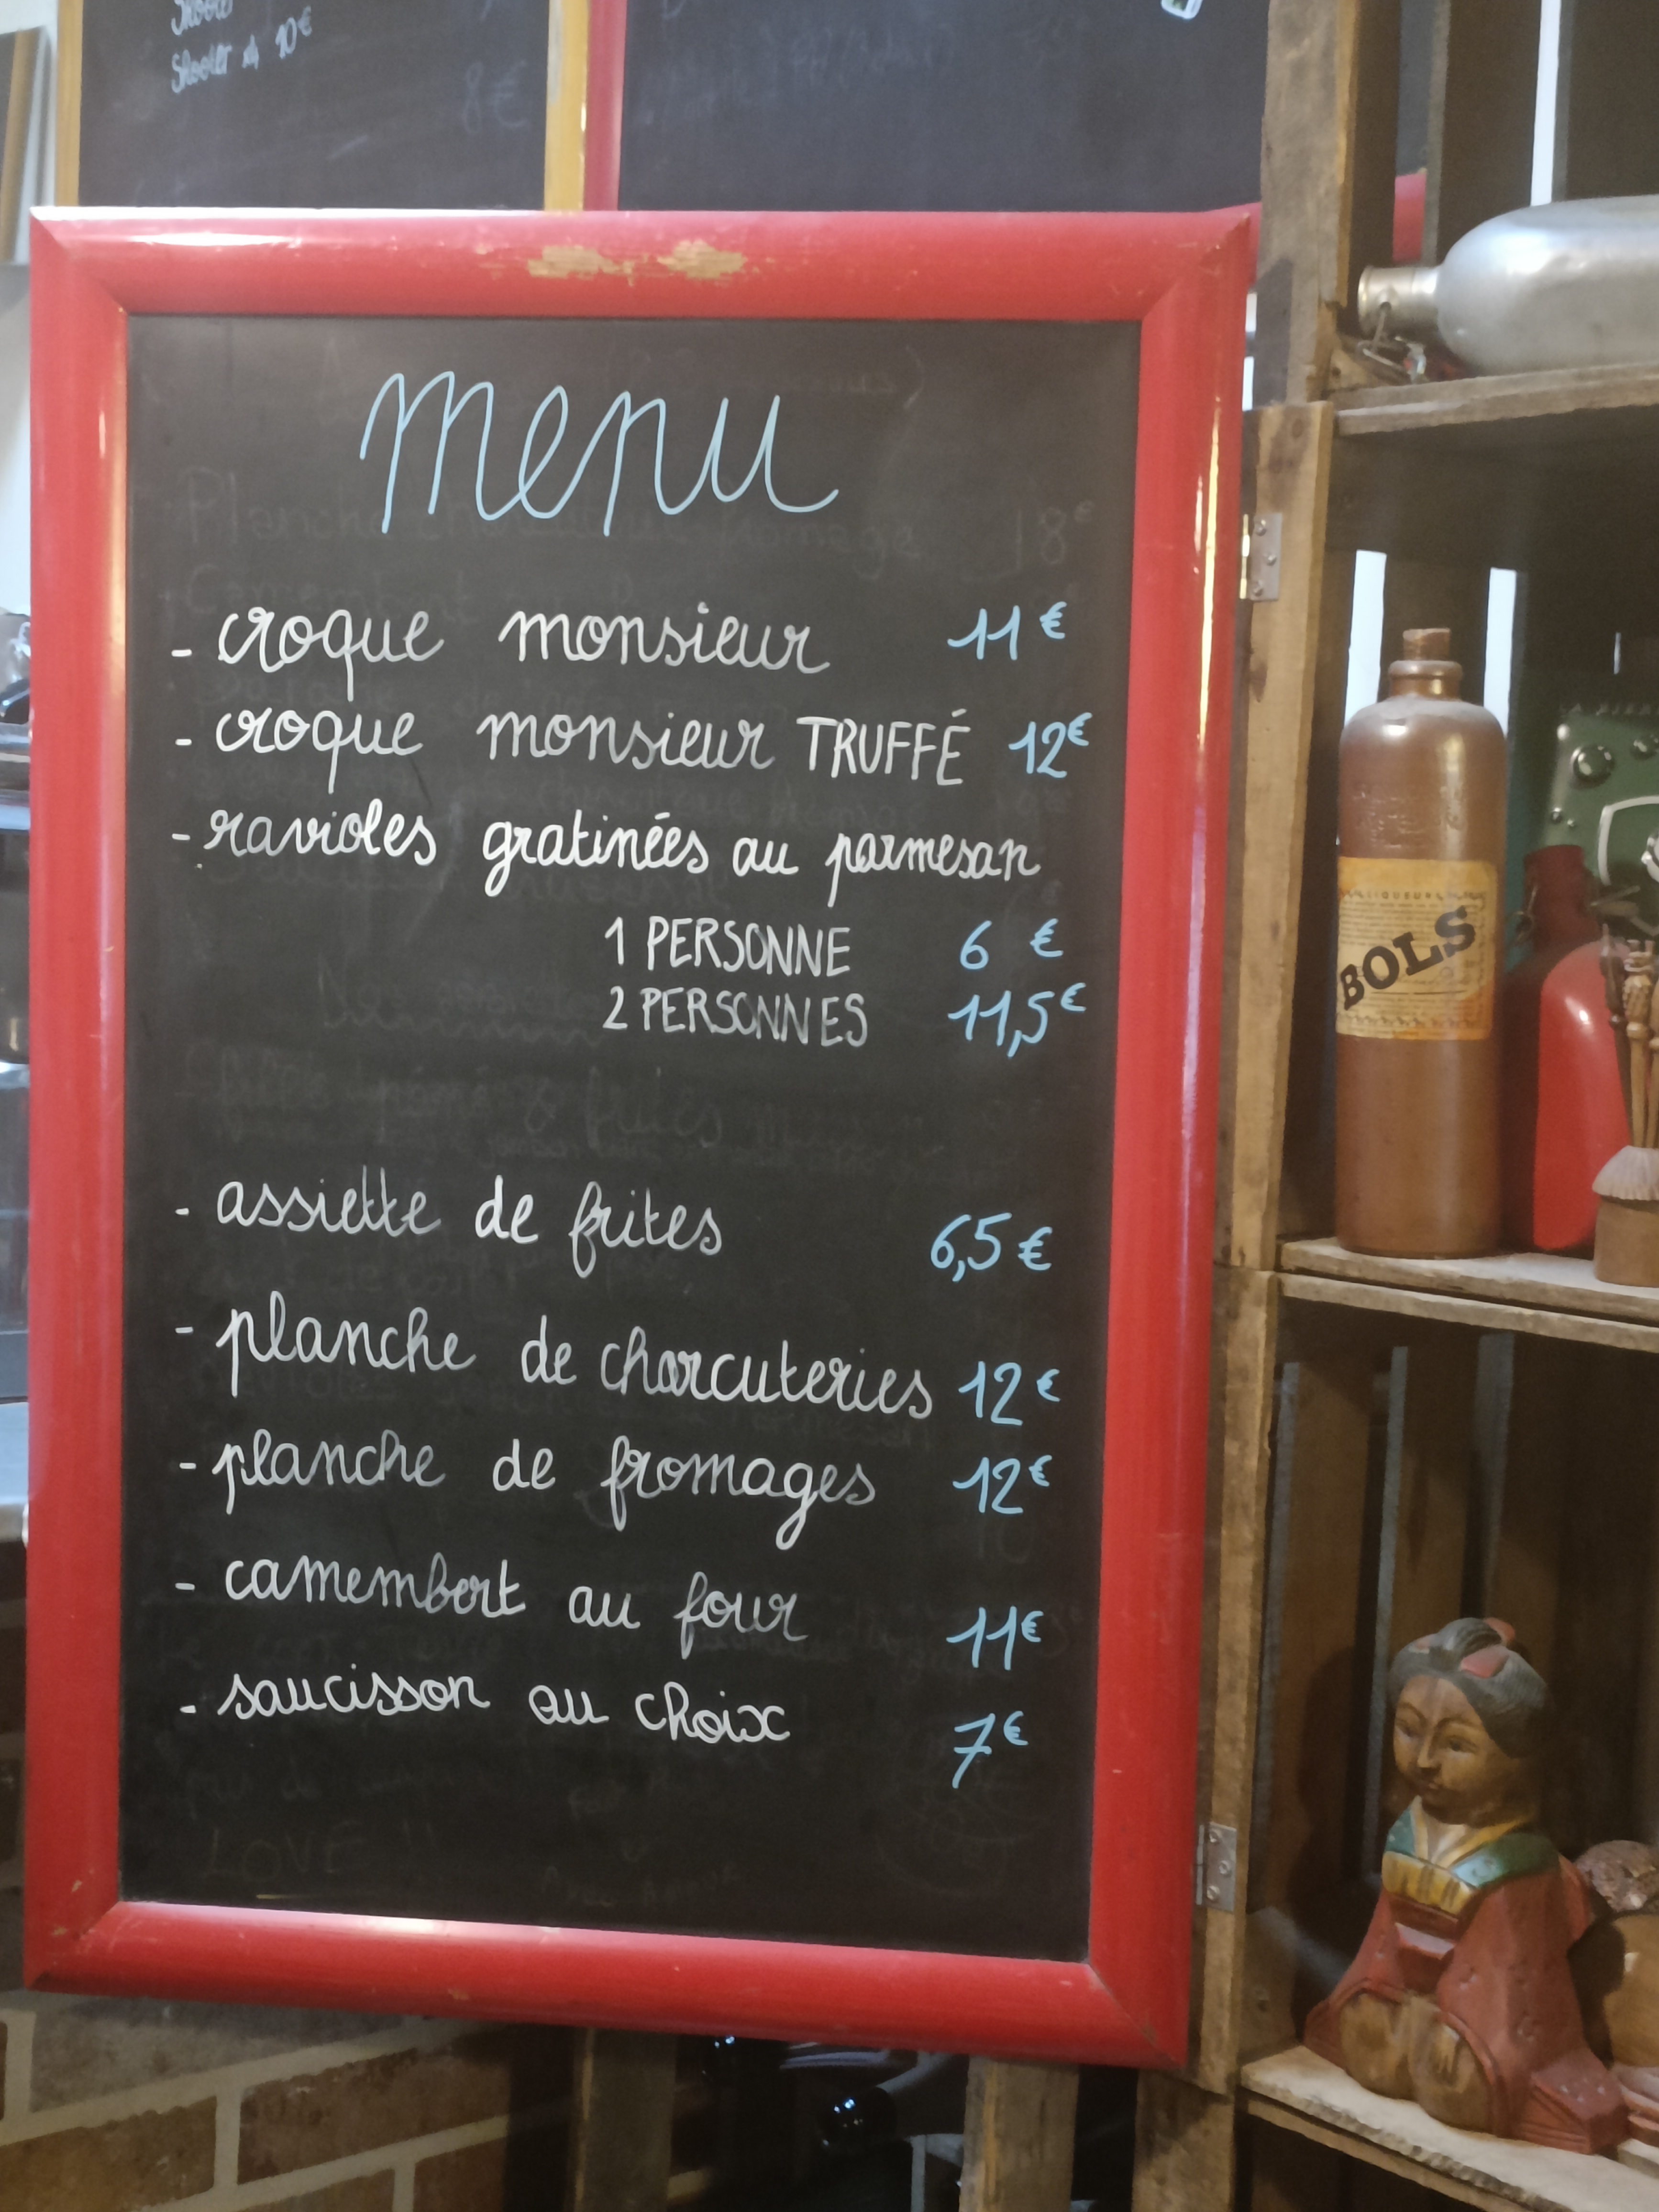 Shooter x4 10€
8€
menu
- croque monsieur 11€
- croque monsieur TRUFFÉ 12€
- ravioles gratinées au parmesan
1 PERSONNE 6 €
2 PERSONNES 11,5€
- assiette de frites 6,5€
- planche de charcuteries 12€
- planche de fromages 12€
- camembert au four 11€
- saucisson au choix 7€
LOVE !!
BOLS